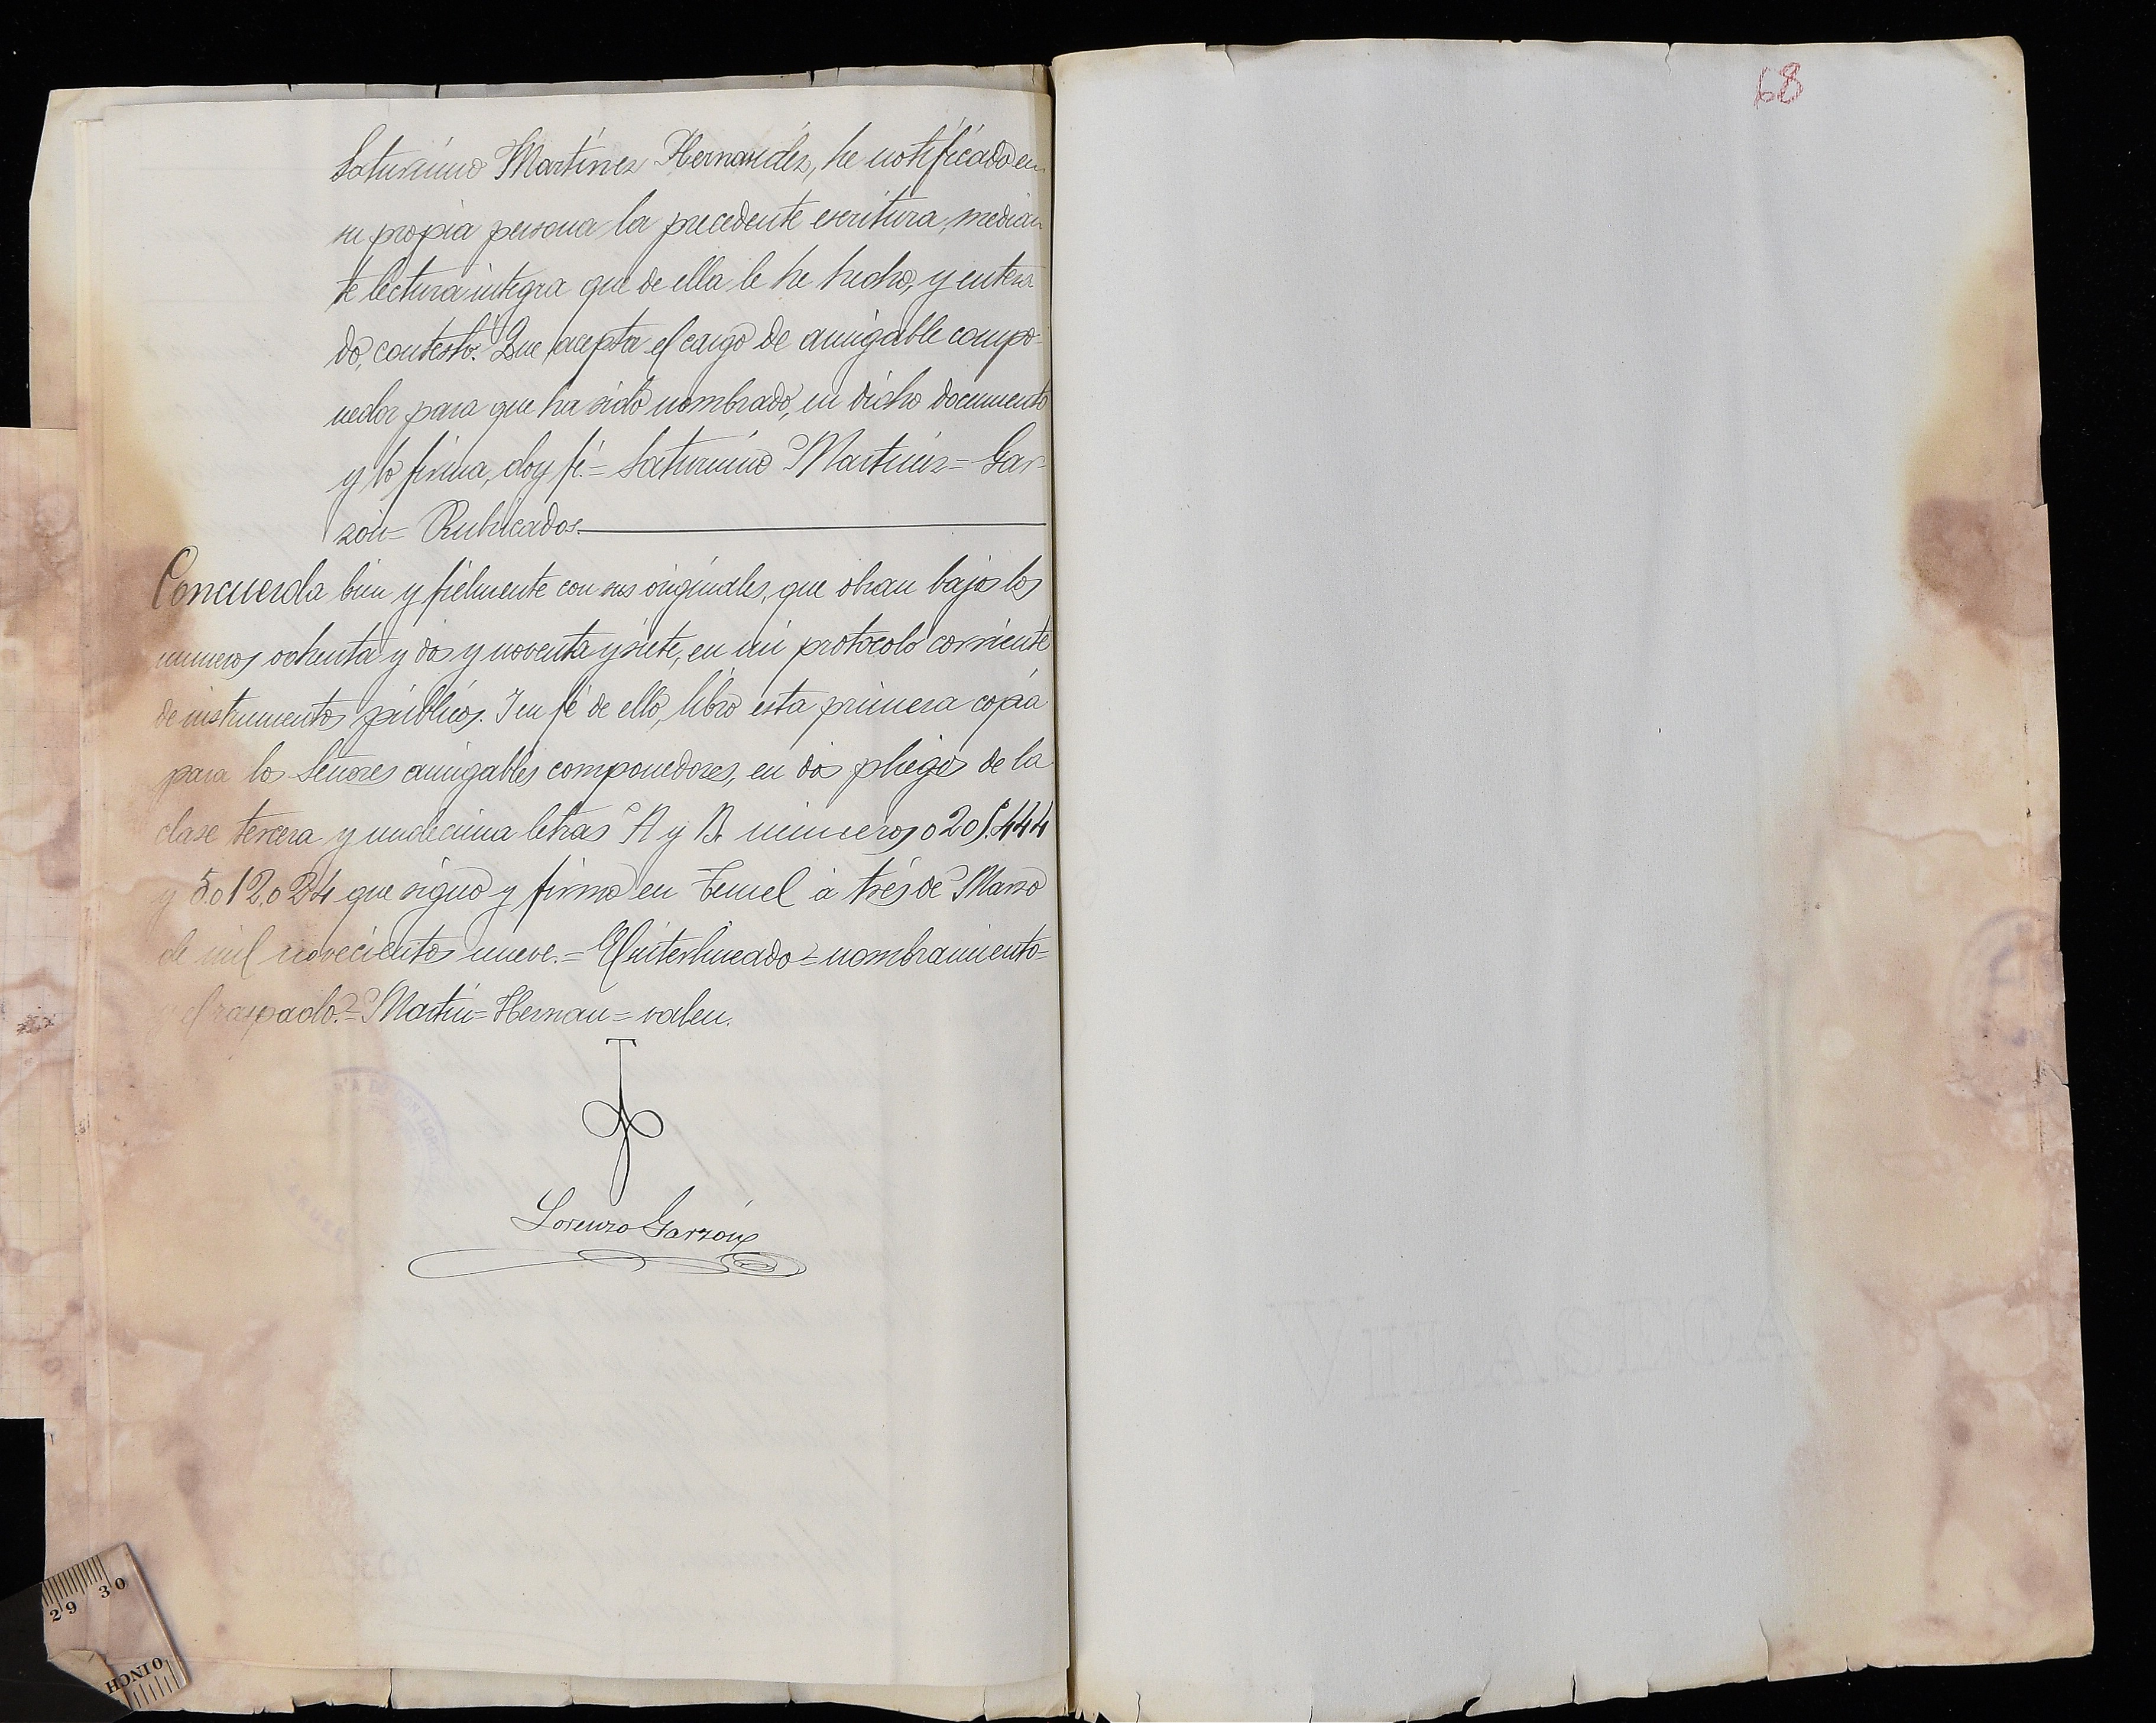 68
Saturnino Martínez Hernández, he notificado en
su propia persona la precedente escritura, median
te lectura íntegra que de ella le he hecho, y entera
do, contestó: Que acepta el cargo de amigable compo-
nedor para que ha sido nombrado, en dicho documento
y lo firma, doy fé.= Saturnino Martínez= Gar-
zón= Rubricados.
Concuerda bien y fielmente con sus originales, que obran bajo los
números ochenta y dos y noventa y siete, en mi protocolo corriente
de instrumentos públicos. Y en fé de ello, libro esta primera copia
para los Señores amigables componedores, en dos pliegos de la
clase tercera y undécima letras A y B. números 0205.444
y 5.012.024 que signo y firmo en Teruel á trés de Marzo
de mil novecientos nueve.= El interlineado= nombramiento=
y el raspado.= Martín= Hernan= valen.
Lorenzo Garzón
29 30
OINCH
VILASECA